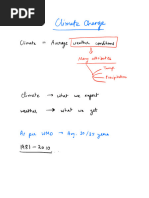 Climate Change
Climate → Average weather conditions
Many attributes
Temp.
Precipitation
Climate → what we expect
weather → what we get
As per WMO → Avg. 31/30 years
1981-2010